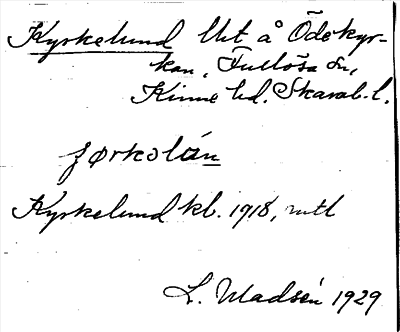 Kyrkelund Ut å Ödekyr-
kan, Fullösa sn,
Kinne hd. Skarab. l.
Kyrkelund kl. 1918, mtl
L. Madsén 1929